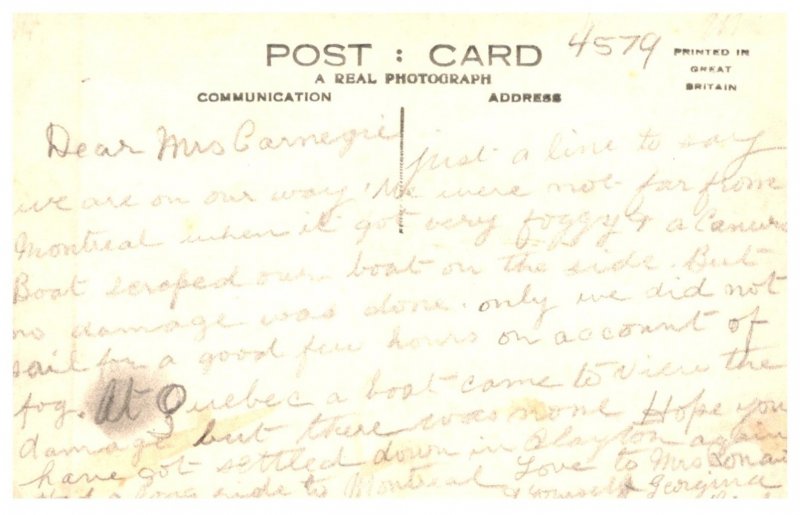 POST : CARD 4579
A REAL PHOTOGRAPH
PRINTED IN
GREAT
BRITAIN
COMMUNICATION ADDRESS
Dear Mrs Carnegie just a line to say
we are on our way. We were not far from
Montreal when it got very foggy & a
Boat scraped our boat on the side. But
no damage was done. only we did not
sail for a good few hours on account of
fog. At Quebec a boat came to view the
damage but there was none Hope you
have got settled down in again
a long ride to Montreal Love to Mrs
Georgina